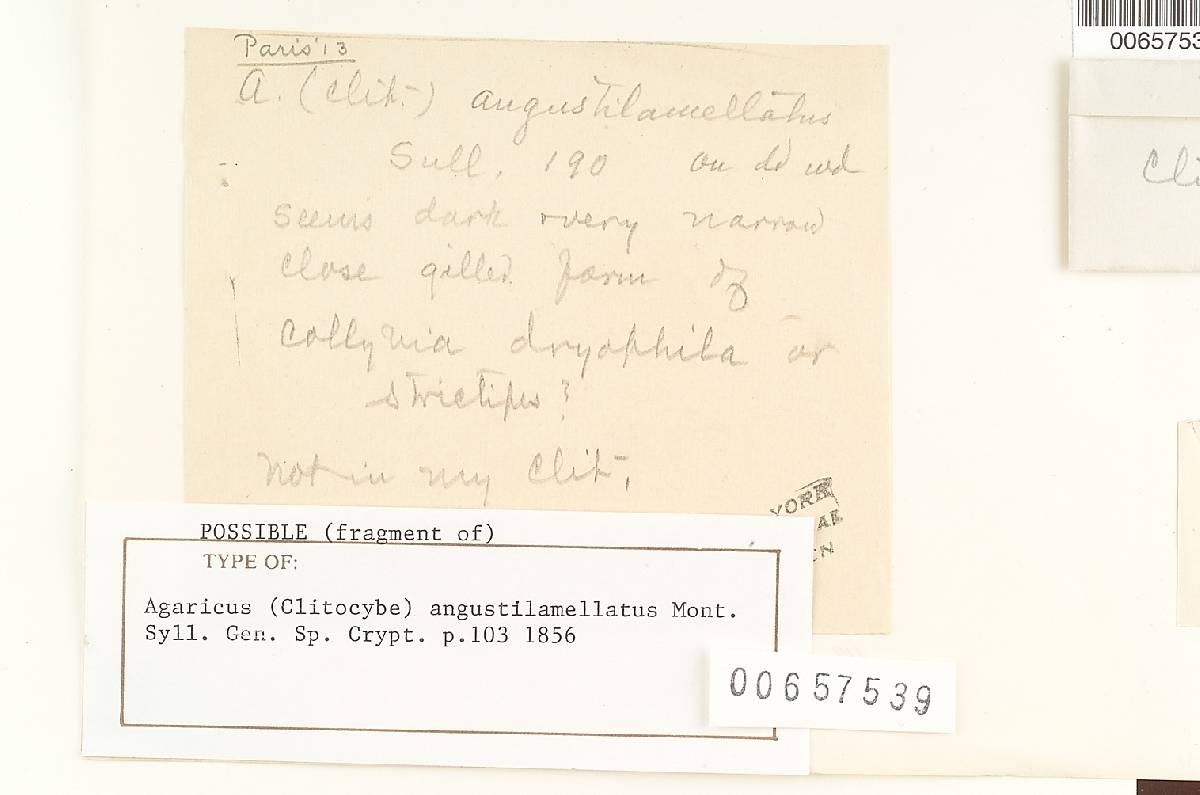 Paris '13
A. (Clit.) angustilamellatus
Sull. 190 on dd wd
seems dark & very narrow
close gilled form of
Collybia dryophila or
strictipes?
Not in my Clit.
YORK
POSSIBLE (fragment of)
TYPE OF:
Agaricus (Clitocybe) angustilamellatus Mont.
Syll. Gen. Sp. Crypt. p.103 1856
00657539
0065753
Cli